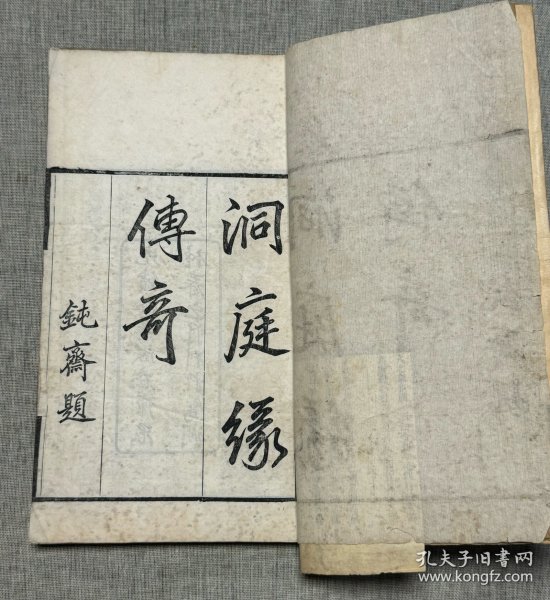 洞庭緣
傳奇
鈍齋題
孔夫子旧书网
www.kongfz.com